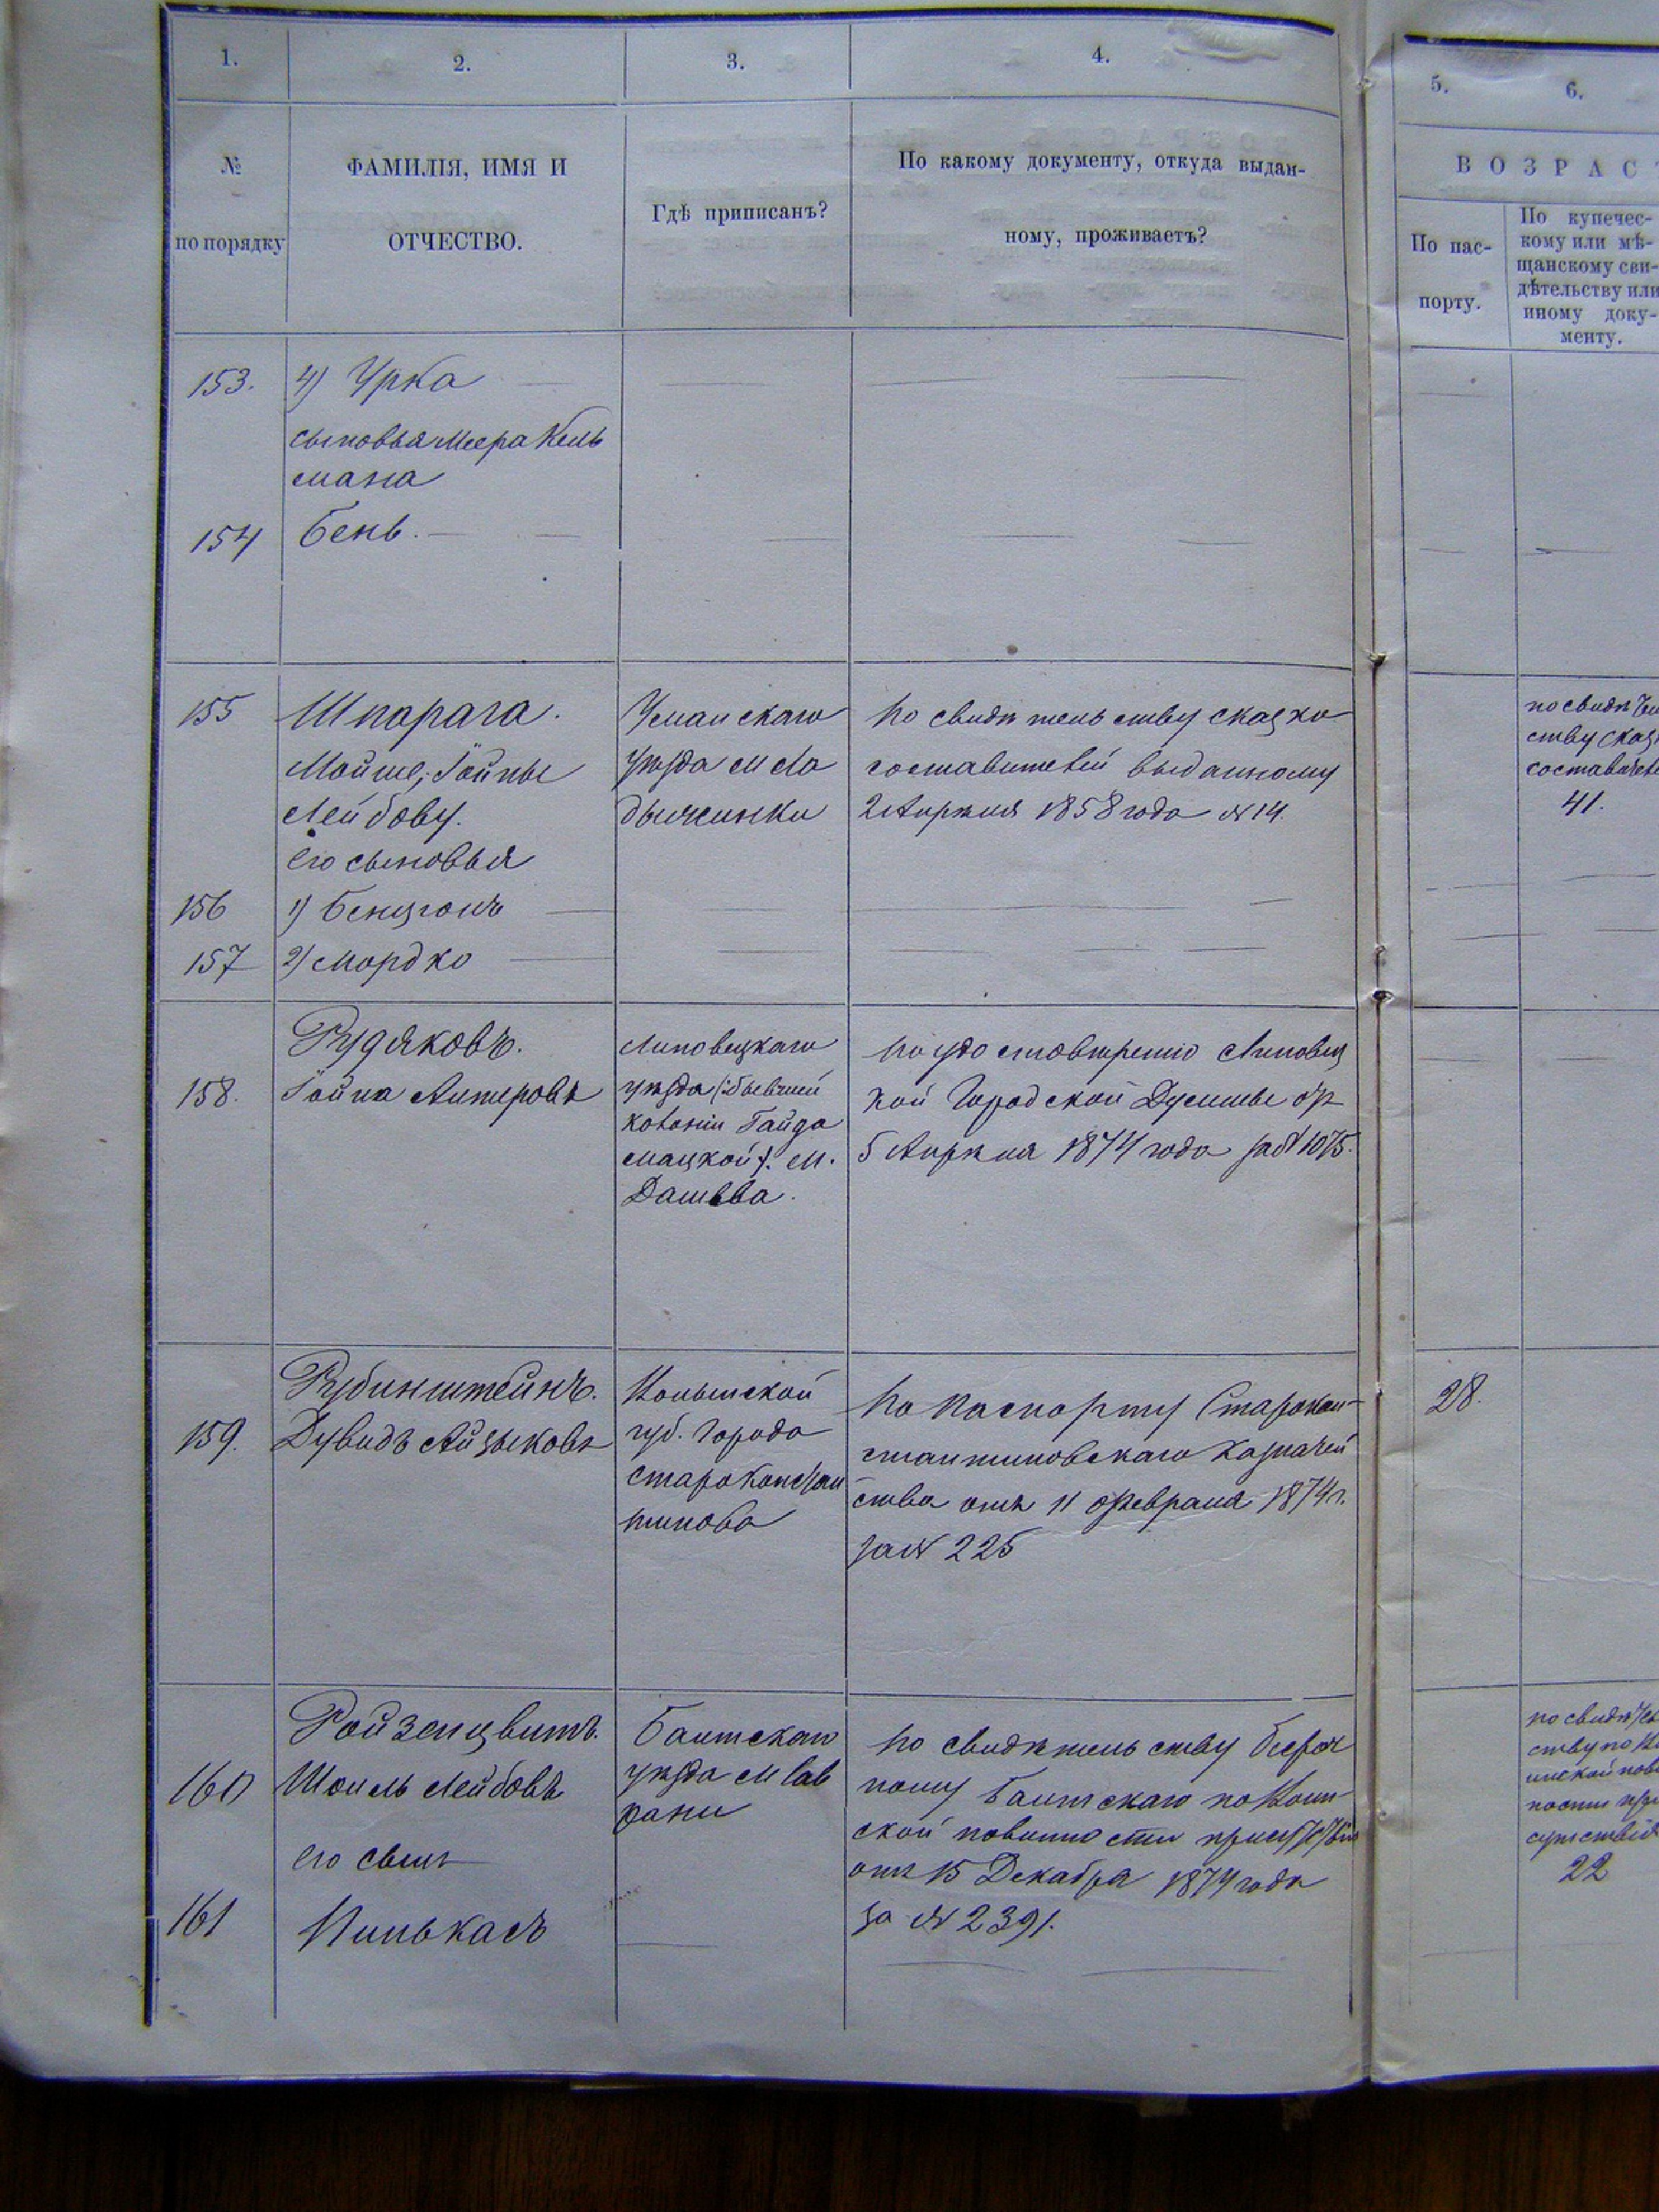 1. 2. 3. 4.
№ по порядку
ФАМИЛІЯ, ИМЯ И
ОТЧЕСТВО.
Гдѣ приписанъ?
По какому документу, откуда выдан-
ному, проживаетъ?
153. 4) Урка
сыновья Меера Кель
мана
154 Бень.
155 Шпарага.
Мойше, Іойны
Лейбову.
его сыновья
Уманскаго
уѣзда м Ла
дыжинки
По свидѣтельству сказко
составителей выданному
2 Апрѣля 1858 года № 14.
156 1) Бенционъ
157 2) Мордко
Рудяковъ.
158. Іойна Антеровъ
Липовецкаго
уѣзда (:бывшей
колоніи Гайда
мацкой:). м.
Дашева.
По удостовѣренію Липовец
кой Городской Думы отъ
5 Апрѣля 1874 года за № 1075.
Рубинштейнъ.
159. Дувидъ Айзыковъ
Волынской
губ. Города
Староконстан
тинова
По паспорту Старокон-
стантиновскаго Казначей
ства отъ 11 Февраля 1874 г.
за № 225
Ройзенцвитъ.
160 Шоиль Лейбовъ
его сынъ
161 Пинькасъ
Балтскаго
уѣзда м Сав
рани
По свидѣтельству безсроч
ному Балтскаго по Воин-
ской повинности присутствія
отъ 15 Декабря 1874 года
за № 2391.
5. 6.
ВОЗРАС
По пас-
порту.
По купечес-
кому или мѣ-
щанскому сви-
дѣтельству или
иному доку-
менту.
по свидѣтель
ству сказк
составителе
41.
28.
по свидѣтель
ству по Во
инской пови
ности при
сутствія
22